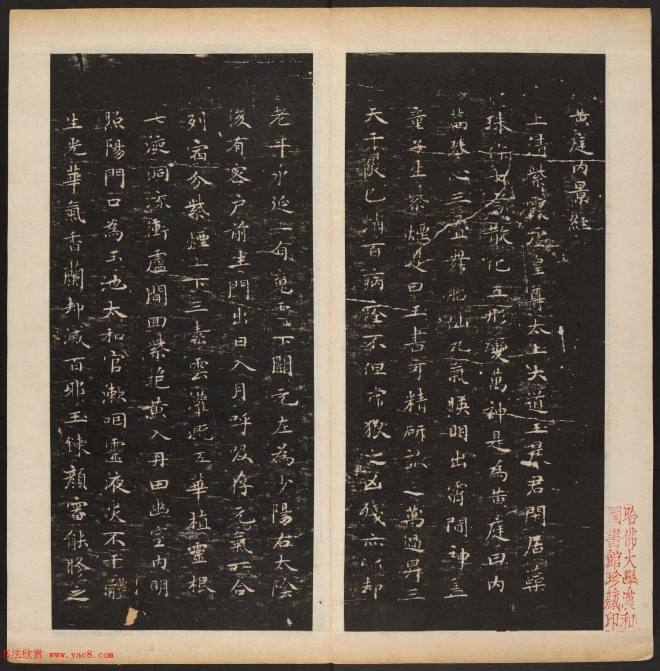 黄庭内景經
上清紫霞虚皇尊太上大道玉晨君閑居蘂
珠作七言散化五形變萬神是為黄庭曰内
篇琴心三疊舞胎仙九氣暎明出霄間神盖
童子生紫煙是曰玉書可精研詠之萬過昇三
天千灾已消百病痊不憚虎狼之凶殘亦以却
老年永延上有魂靈下關元左為少陽右太陰
後有密户前生門出日入月呼吸存元氣所合
列宿分紫煙上下三素雲灌溉五華植靈根
七液洞流衝廬間回紫抱黄入丹田幽室内明
照陽門口為玉池太和官漱咽靈液灾不干體
生光華氣香蘭却滅百邪玉鍊顔審能修之
哈佛大學漢和
圖書館珍藏印
书法欣赏 www.yac8.com